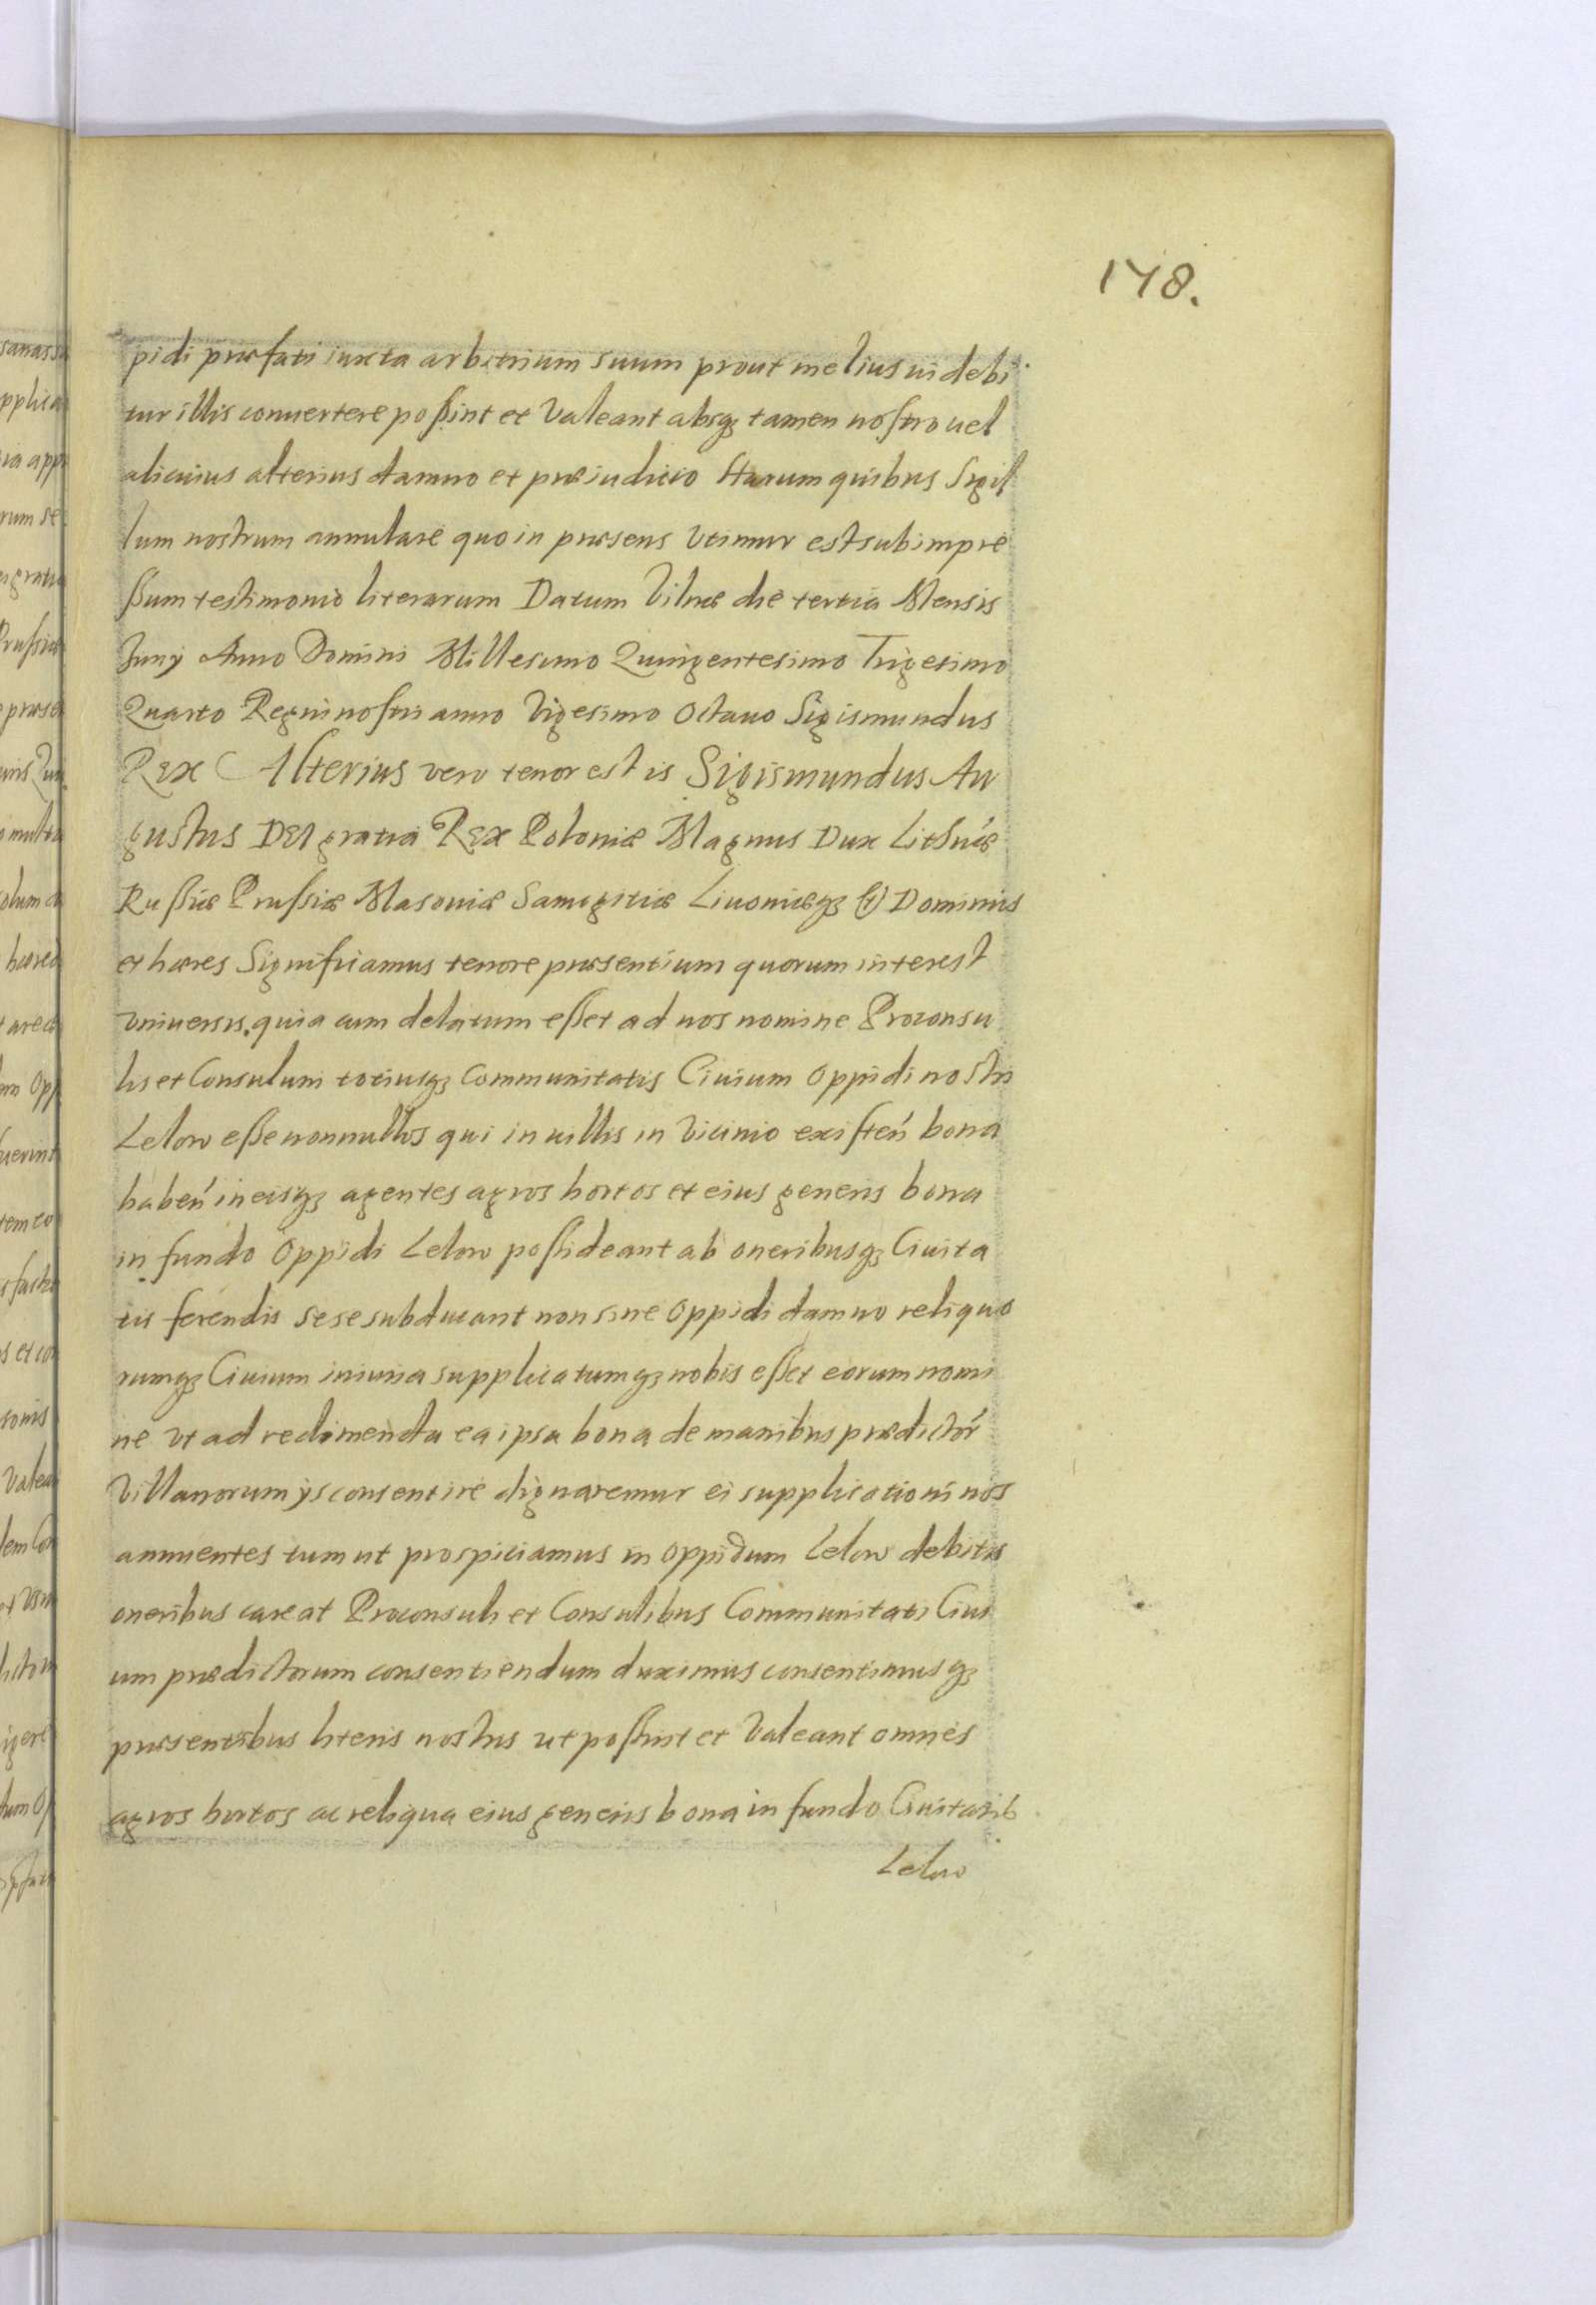 148.
pidi præfati iuxta arbitrium suum prout melius uidebi
tur illis conuertere poßint et Valeant absq3 tamen nostro uel
alicuius alterius damno et præiudicio Harum quibus Sigil
lum nostrum annulare quo in præsens Vtimur est subimpre
ßum testimonio literarum Datum Vilnæ die tertia Mensis
Junÿ Anno Domini Millesimo Quingentesimo Trigesimo
Quarto Regni nostri anno Vigesimo Octauo Sigismundus
Rex Alterius vero tenor est is Sigismundus Au
gustus DEI gratia Rex Poloniæ Magnus Dux Lithuæ
Rußiæ Prußiæ Masouiæ Samogitiæ Liuoniæq3 Dominus
et hæres Significamus tenore præsentium quorum interest
vniuersis. quia cum delatum eßet ad nos nomine Proconsu
lis et Consulum totiusq3 Communitatis Ciuium Oppidi nostri
Lelow eße nonnullos qui in uillis in Vicinio existeń bona
habeń in eisq3 agentes agros hortos et eius generis bona
in fundo Oppidi Lelow poßideant ab oneribusq3 Ciuita
tis ferendis sese subducant non sine Oppidi damno reliquo
rumq3 Ciuium iniuria supplicatumq3 nobis eßet eorum nomi
ne vt ad redimenda ea ipsa bona de manibus prædictoŕ
Villanorum ÿs consentire dignaremur ei supplicationi nos
annuentes tum ut prospiciamus ne Oppidum Lelow debitis
oneribus careat Proconsuli et Consulibus Communitati Ciui
um prædictorum consentiendum duximus consentimusq3
præsentibus literis nostris ut poßint et Valeant omnes
agros hortos ac reliqua eius generis bona in fundo Ciuitatis
Lelow